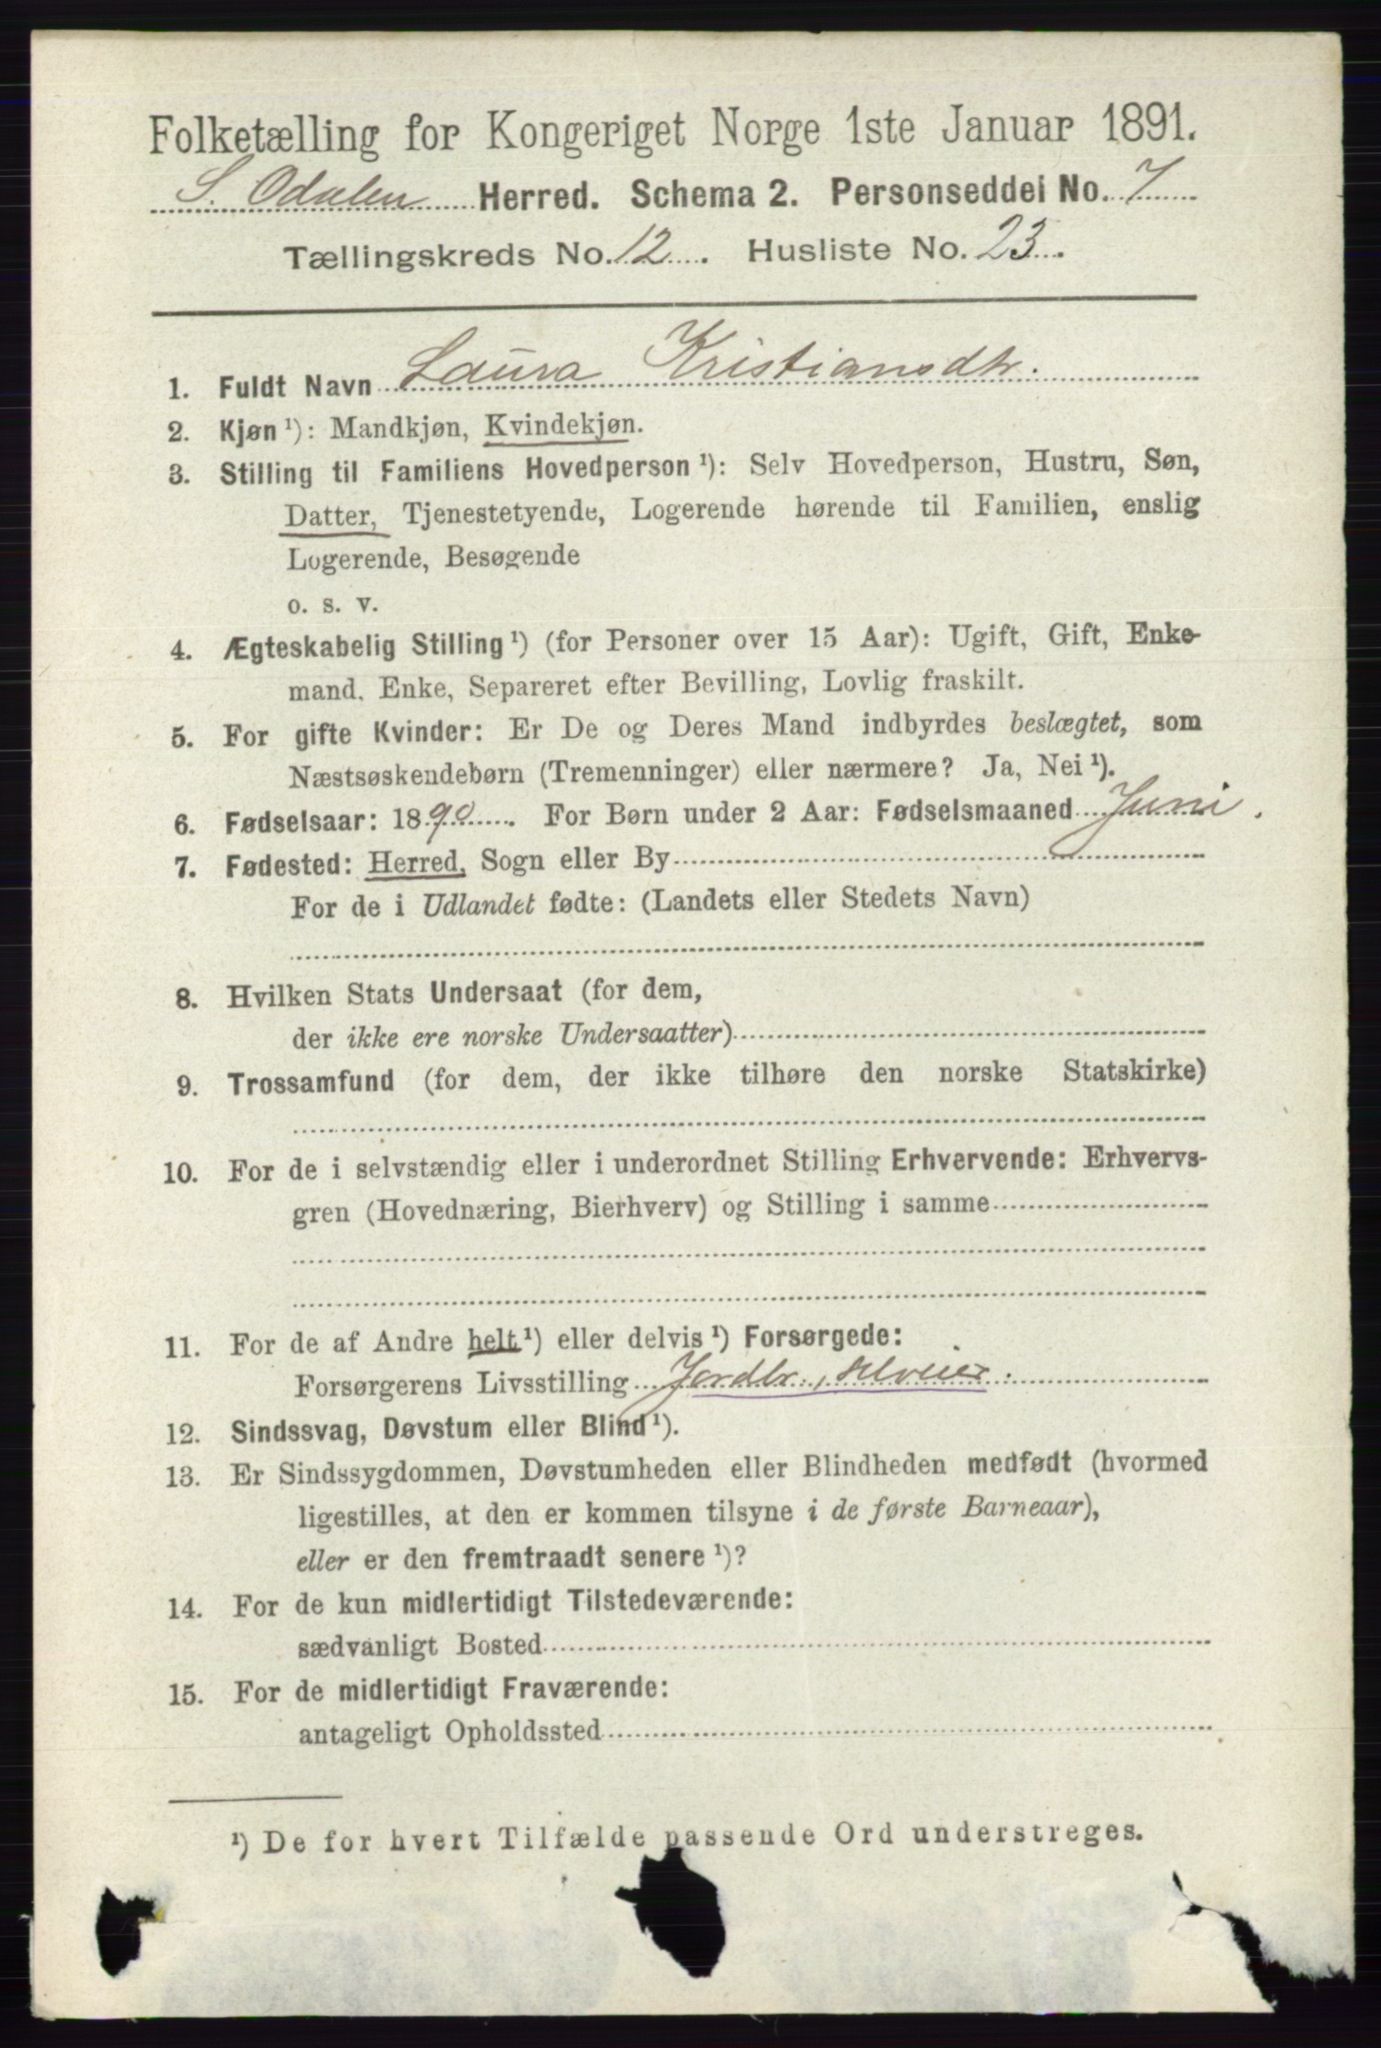 Folketælling for Kongeriget Norge 1ste Januar 1891.
S. Odalen Herred. Schema 2. Personseddel No. 7
Tællingskreds No. 12. Husliste No. 23.
1. Fuldt Navn Laura Kristiansdtr.
2. Kjøn ¹): Mandkjøn, Kvindekjøn.
3. Stilling til Familiens Hovedperson ¹): Selv Hovedperson, Hustru, Søn,
Datter, Tjenestetyende, Logerende hørende til Familien, enslig
Logerende, Besøgende
o. s. v.
4. Ægteskabelig Stilling ¹) (for Personer over 15 Aar): Ugift, Gift, Enke-
mand, Enke, Separeret efter Bevilling, Lovlig fraskilt.
5. For gifte Kvinder: Er De og Deres Mand indbyrdes beslægtet, som
Næstsøskendebørn (Tremenninger) eller nærmere? Ja, Nei ¹).
6. Fødselsaar: 1890. For Børn under 2 Aar: Fødselsmaaned Juni.
7. Fødested: Herred, Sogn eller By
For de i Udlandet fødte: (Landets eller Stedets Navn)
8. Hvilken Stats Undersaat (for dem,
der ikke ere norske Undersaatter)
9. Trossamfund (for dem, der ikke tilhøre den norske Statskirke)
10. For de i selvstændig eller i underordnet Stilling Erhvervende: Erhvervs-
gren (Hovednæring, Bierhverv) og Stilling i samme
11. For de af Andre helt ¹) eller delvis ¹) Forsørgede:
Forsørgerens Livsstilling Jordbr., selveier.
12. Sindssvag, Døvstum eller Blind ¹).
13. Er Sindssygdommen, Døvstumheden eller Blindheden medfødt (hvormed
ligestilles, at den er kommen tilsyne i de første Barneaar),
eller er den fremtraadt senere ¹)?
14. For de kun midlertidigt Tilstedeværende:
sædvanligt Bosted
15. For de midlertidigt Fraværende:
antageligt Opholdssted
¹) De for hvert Tilfælde passende Ord understreges.